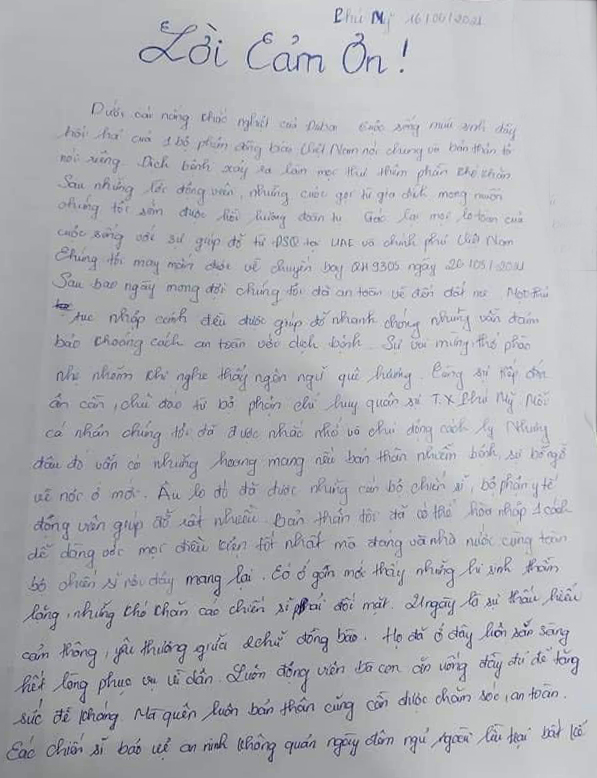 Phú Mỹ 16/04/2021
Lời Cảm Ơn!
Dưới cái nắng khắc nghiệt của Dubai cuộc sống mưu sinh đầy
hối hả của 1 bộ phận đồng bào Việt Nam nói chung và bản thân tôi
nói riêng. Dịch bệnh xảy ra làm mọi thứ thêm phần khó khăn
Sau những lời động viên, những cuộc gọi từ gia đình mong muốn
chúng tôi sớm được hồi hương đoàn tụ. Gác lại mọi lo toan của
cuộc sống với sự giúp đỡ từ ĐSQ tại UAE và chính phủ Việt Nam
Chúng tôi may mắn được về chuyến bay QH9305 ngày 26/03/2021
Sau bao ngày mong đợi chúng tôi đã an toàn về đến đất mẹ. Mọi thủ
tục nhập cảnh đều được giúp đỡ nhanh chóng nhưng vẫn đảm
bảo khoảng cách an toàn với dịch bệnh. Sự vui mừng, thở phào
nhẹ nhõm khi nghe thấy ngôn ngữ quê hương. Cùng sự tiếp đón
ân cần, chu đáo từ bộ phận chỉ huy quân sự T.X Phú Mỹ. Mỗi
cá nhân chúng tôi đã được nhắc nhở và chủ động cách ly. Nhưng
đâu đó vẫn có những hoang mang nếu bản thân nhiễm bệnh, sự bỡ ngỡ
về nơi ở mới. Âu lo đó đã được những cán bộ chiến sĩ, bộ phận y tế
động viên giúp đỡ rất nhiều. Bản thân tôi đã có thể hòa nhập 1 cách
dễ dàng với mọi điều kiện tốt nhất mà đảng và nhà nước cùng toàn
bộ chiến sĩ nơi đây mang lại. Có ở gần mới thấy những hi sinh thầm
lặng, những khó khăn các chiến sĩ phải đối mặt. 21 ngày là sự thấu hiểu
cảm thông, yêu thương giữa 2 chữ đồng bào. Họ đã ở đây luôn sẵn sàng
hết lòng phục vụ vì dân. Luôn động viên bà con ăn uống đầy đủ để tăng
sức đề kháng. Mà quên luôn bản thân cũng cần được chăm sóc, an toàn.
Các chiến sĩ bảo vệ an ninh không quản ngày đêm ngủ ngoài lều trại bất kể